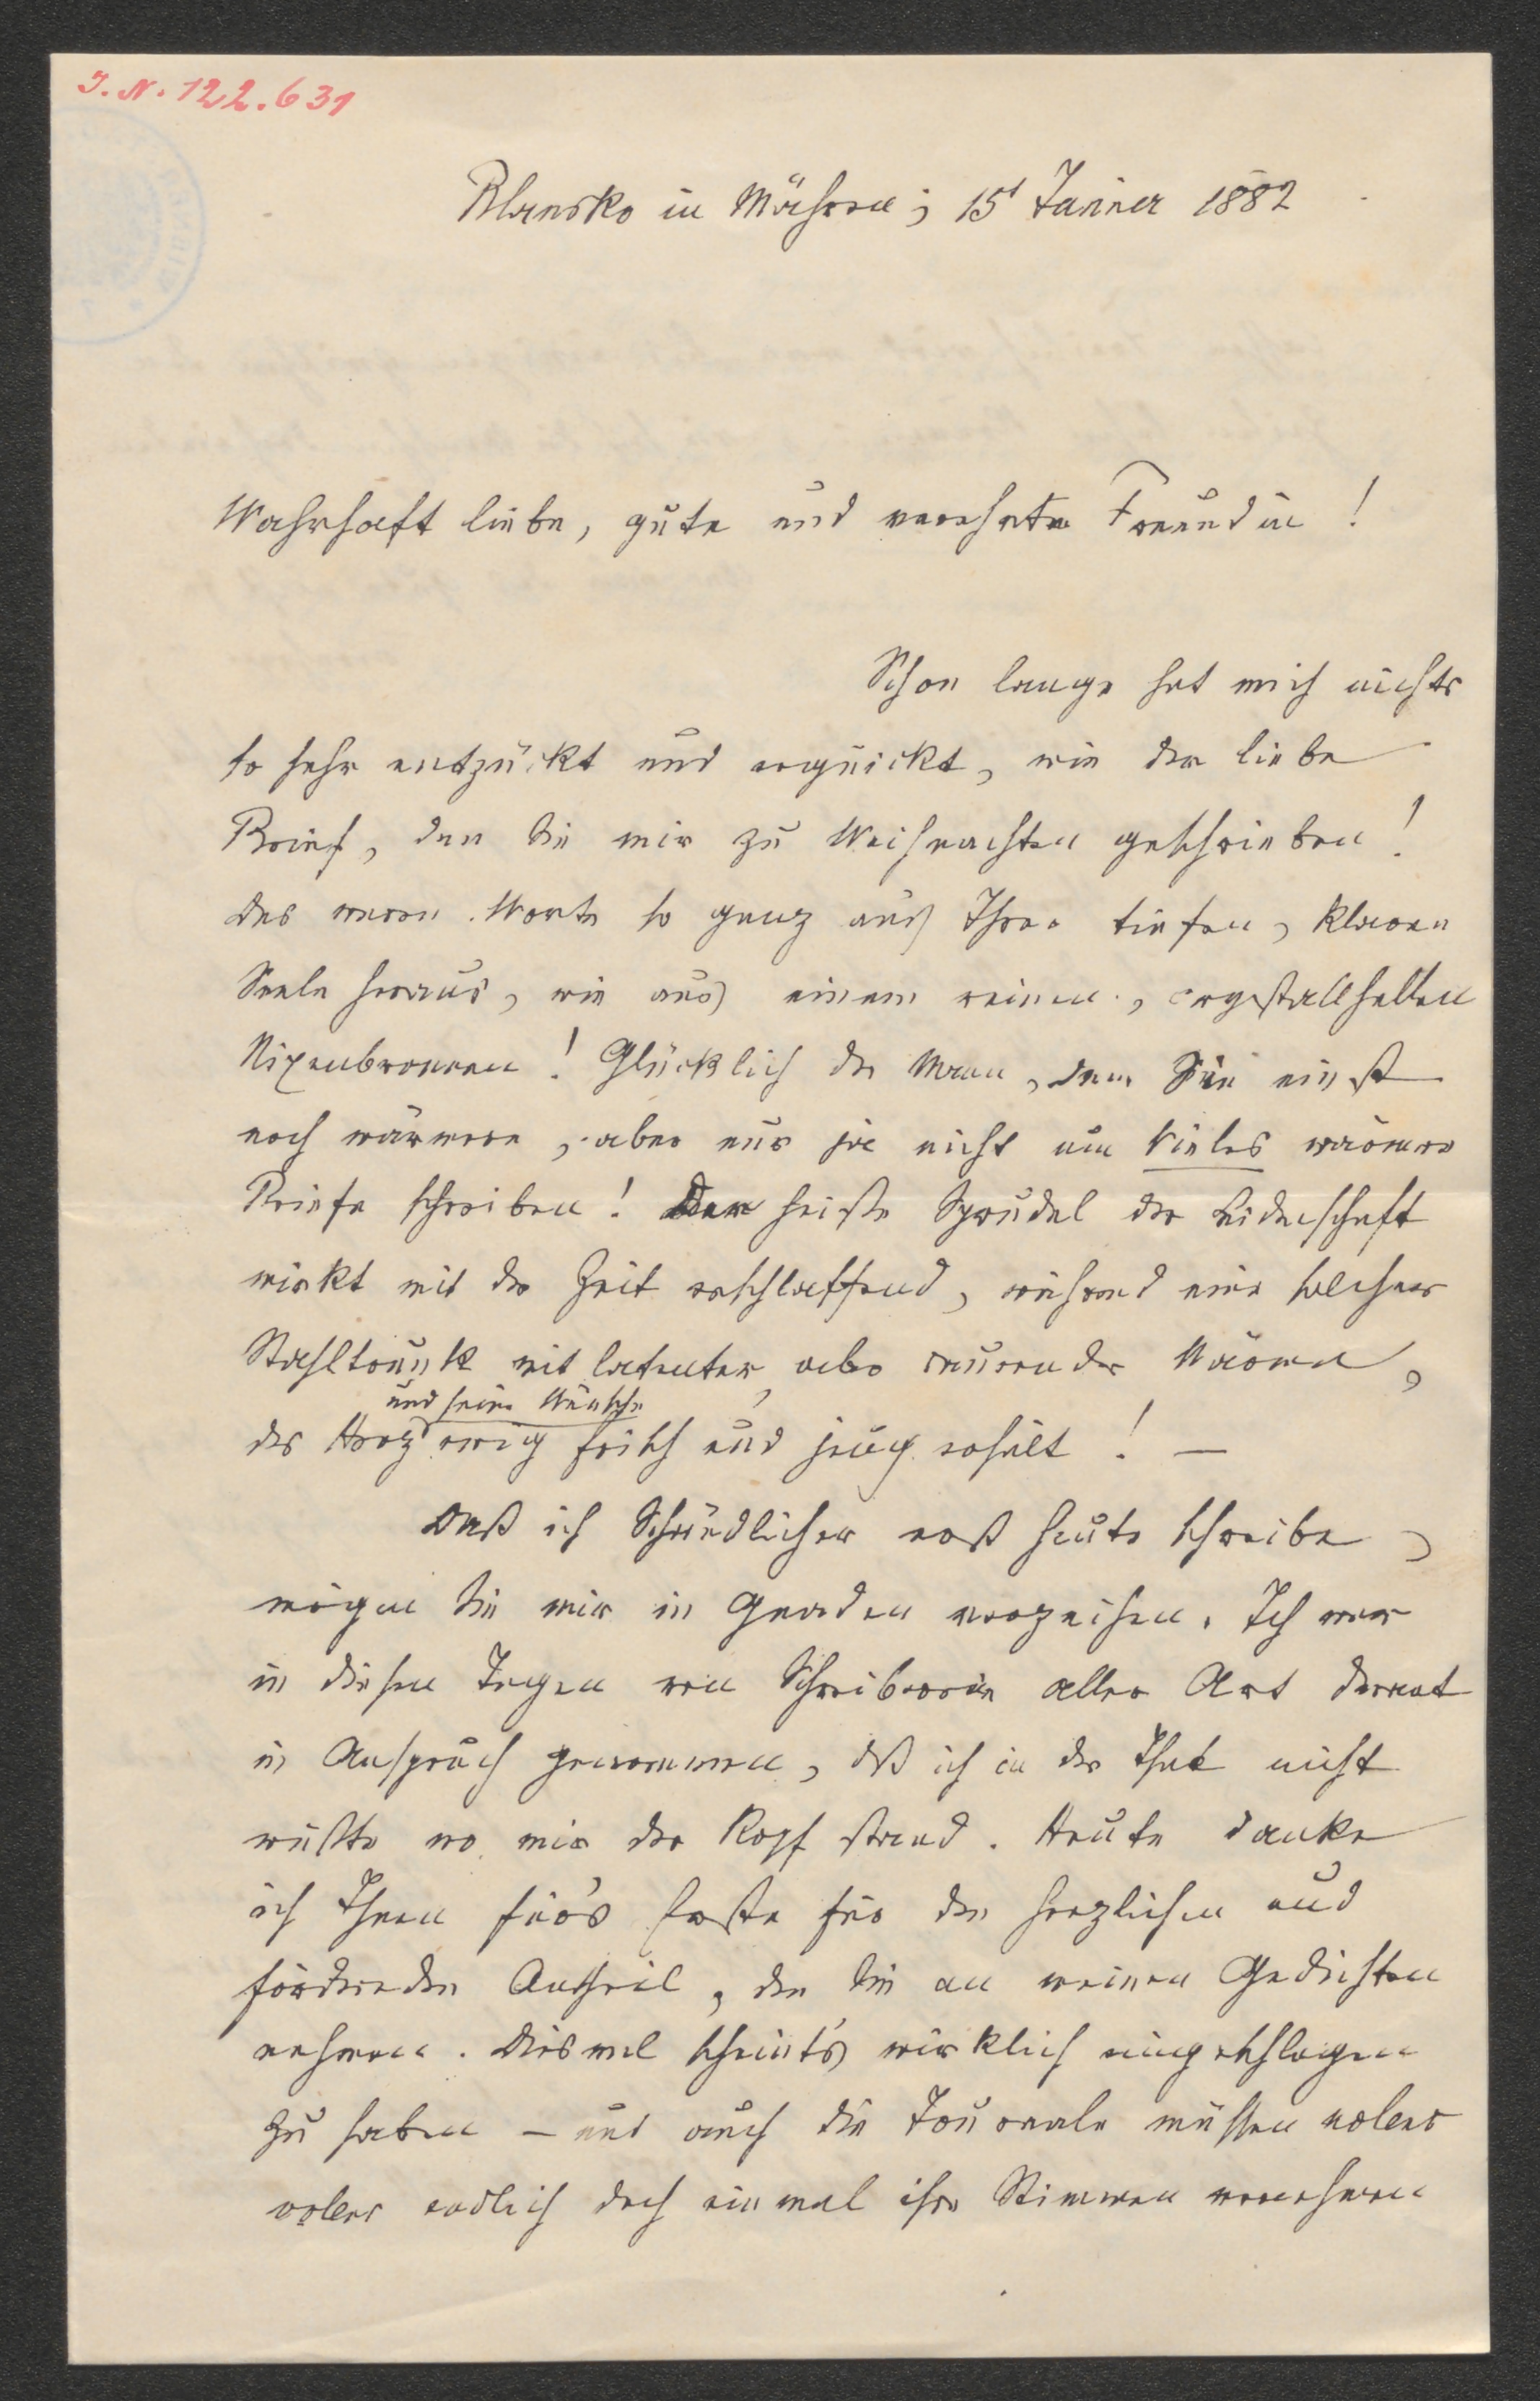 J. N. 122.631
Blansko in Mähren; 15t Jänner 1882
Wahrhaft liebe, gute und verehrte Freundin!
Schon lange hat mich nichts
so sehr entzückt und erquickt, wie der liebe
Brief, den Sie mir zu Weihnachten geschrieben!
Das waren Worte so ganz aus Ihrer tiefen, klaren
Seele heraus, wie aus einem reinen, crystallhellen
Nixenbronnen! Glücklich der Mann, dem Sie einst
noch wärmere, aber nur ja nicht um Vieles wärmere
Briefe schreiben! Der heiße Sprudel der Leidenschaft
wirkt mit der Zeit erschlaffend, während ein solcher
Stahltrunk mit latenter, aber dauernder Wärme,
und seine Wünsche
das Herz ewig frisch und jung erhält! —
Daß ich Schändlicher erst heute schreibe,
mögen Sie mir in Gnaden verzeihen. Ich war
in diesen Tagen von Schreiberein aller Art derart
in Anspruch genommen, dß ich in der That nicht
wußte wo mir der Kopf stand. Heute danke
ich Ihnen für's Erste für den herzlichen und
fördernden Antheil, den Sie an meinen Gedichten
nehmen. Diesmal scheint's wirklich eingeschlagen
zu haben – und auch die Journale müssen nolens
volens endlich doch einmal ihre Stimmen vernehmen